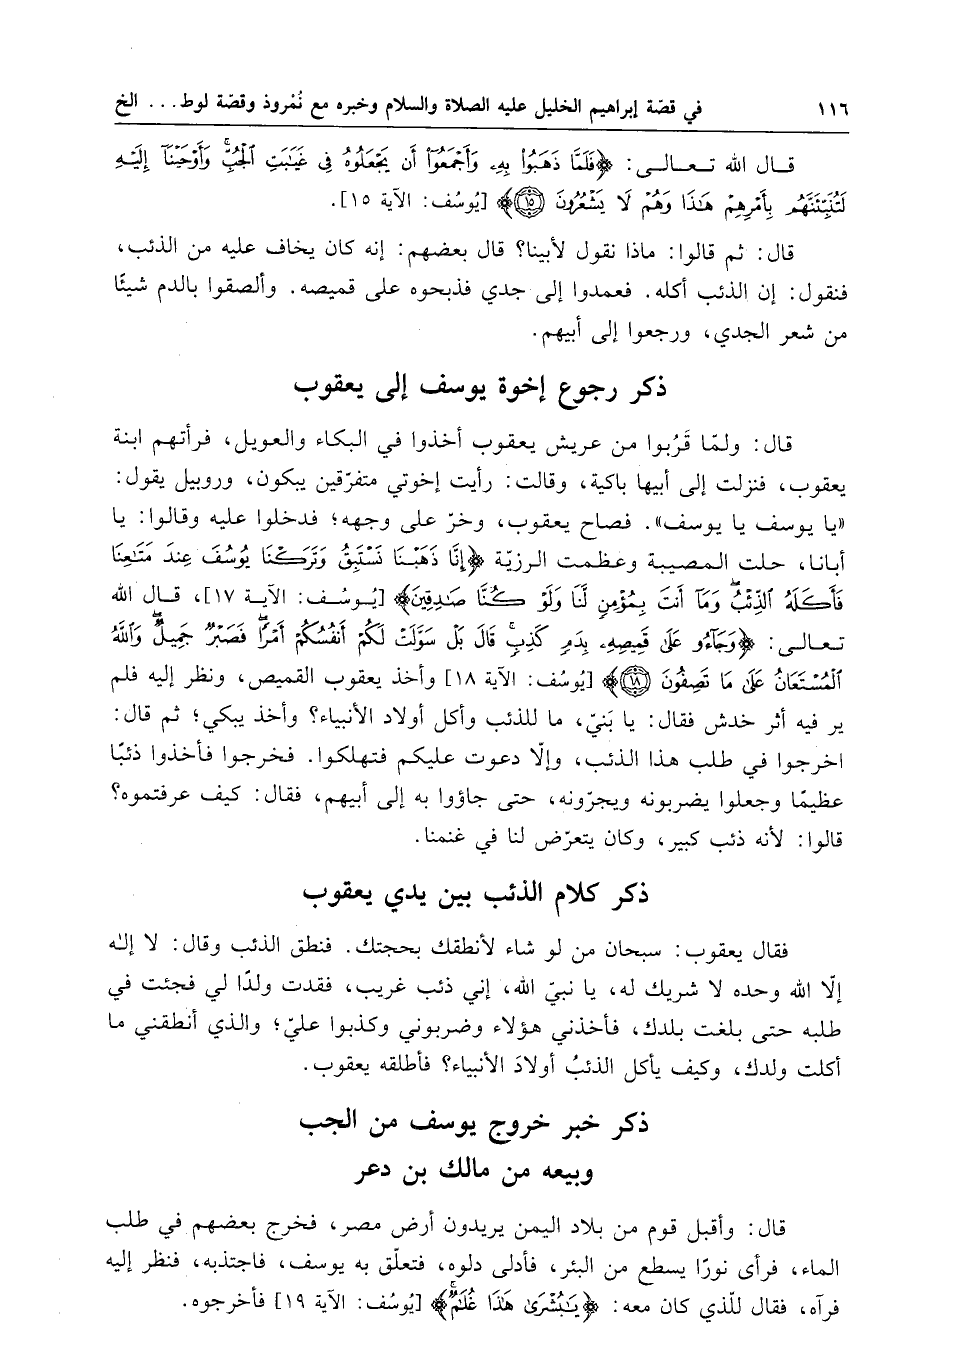 ١١٦ في قصّة إبراهيم الخليل عليه الصلاة والسلام وخبره مع نُمْروذ وقصّة لوط... الخ
قال الله تعالى: ﴿فَلَمَّا ذَهَبُوا۟ بِهِۦ وَأَجْمَعُوٓا۟ أَن يَجْعَلُوهُ فِى غَيَـٰبَتِ ٱلْجُبِّ ۚ وَأَوْحَيْنَآ إِلَيْهِ
لَتُنَبِّئَنَّهُم بِأَمْرِهِمْ هَـٰذَا وَهُمْ لَا يَشْعُرُونَ ١٥﴾ [يُوسُف: الآية ١٥].
قال: ثم قالوا: ماذا نقول لأبينا؟ قال بعضهم: إنه كان يخاف عليه من الذئب،
فنقول: إن الذئب أكله. فعمدوا إلى جدي فذبحوه على قميصه. وألصقوا بالدم شيئًا
من شعر الجدي، ورجعوا إلى أبيهم.
ذكر رجوع إخوة يوسف إلى يعقوب
قال: ولمّا قَرُبوا من عريش يعقوب أخذوا في البكاء والعويل، فرأتهم ابنة
يعقوب، فنزلت إلى أبيها باكية، وقالت: رأيت إخوتي متفرّقين يبكون، وروبيل يقول:
«يا يوسف يا يوسف». فصاح يعقوب، وخرّ على وجهه؛ فدخلوا عليه وقالوا: يا
أبانا، حلت المصيبة وعظمت الرزيّة ﴿إِنَّا ذَهَبْنَا نَسْتَبِقُ وَتَرَكْنَا يُوسُفَ عِندَ مَتَـٰعِنَا
فَأَكَلَهُ ٱلذِّئْبُ ۖ وَمَآ أَنتَ بِمُؤْمِنٍ لَّنَا وَلَوْ كُنَّا صَـٰدِقِينَ﴾ [يُوسُف: الآية ١٧]، قال الله
تعالى: ﴿وَجَآءُو عَلَىٰ قَمِيصِهِۦ بِدَمٍ كَذِبٍ ۚ قَالَ بَلْ سَوَّلَتْ لَكُمْ أَنفُسُكُمْ أَمْرًا ۖ فَصَبْرٌ جَمِيلٌ ۖ وَٱللَّهُ
ٱلْمُسْتَعَانُ عَلَىٰ مَا تَصِفُونَ ١٨﴾ [يُوسُف: الآية ١٨] وأخذ يعقوب القميص، ونظر إليه فلم
ير فيه أثر خدش فقال: يا بَنيّ، ما للذئب وأكل أولاد الأنبياء؟ وأخذ يبكي؛ ثم قال:
اخرجوا في طلب هذا الذئب، وإلّا دعوت عليكم فتهلكوا. فخرجوا فأخذوا ذئبًا
عظيمًا وجعلوا يضربونه ويجرّونه، حتى جاؤوا به إلى أبيهم، فقال: كيف عرفتموه؟
قالوا: لأنه ذئب كبير، وكان يتعرّض لنا في غنمنا.
ذكر كلام الذئب بين يدي يعقوب
فقال يعقوب: سبحان من لو شاء لأنطقك بحجتك. فنطق الذئب وقال: لا إله
إلّا الله وحده لا شريك له، يا نبيّ الله، إني ذئب غريب، فقدت ولدًا لي فجئت في
طلبه حتى بلغت بلدك، فأخذني هؤلاء وضربوني وكذبوا عليّ؛ والذي أنطقني ما
أكلت ولدك، وكيف يأكل الذئبُ أولادَ الأنبياء؟ فأطلقه يعقوب.
ذكر خبر خروج يوسف من الجب
وبيعه من مالك بن دعر
قال: وأقبل قوم من بلاد اليمن يريدون أرض مصر، فخرج بعضهم في طلب
الماء، فرأى نورًا يسطع من البئر، فأدلى دلوه، فتعلّق به يوسف، فاجتذبه، فنظر إليه
فرآه، فقال للّذي كان معه: ﴿يَـٰبُشْرَىٰ هَـٰذَا غُلَـٰمٌ ۚ﴾ [يُوسُف: الآية ١٩] فأخرجوه.